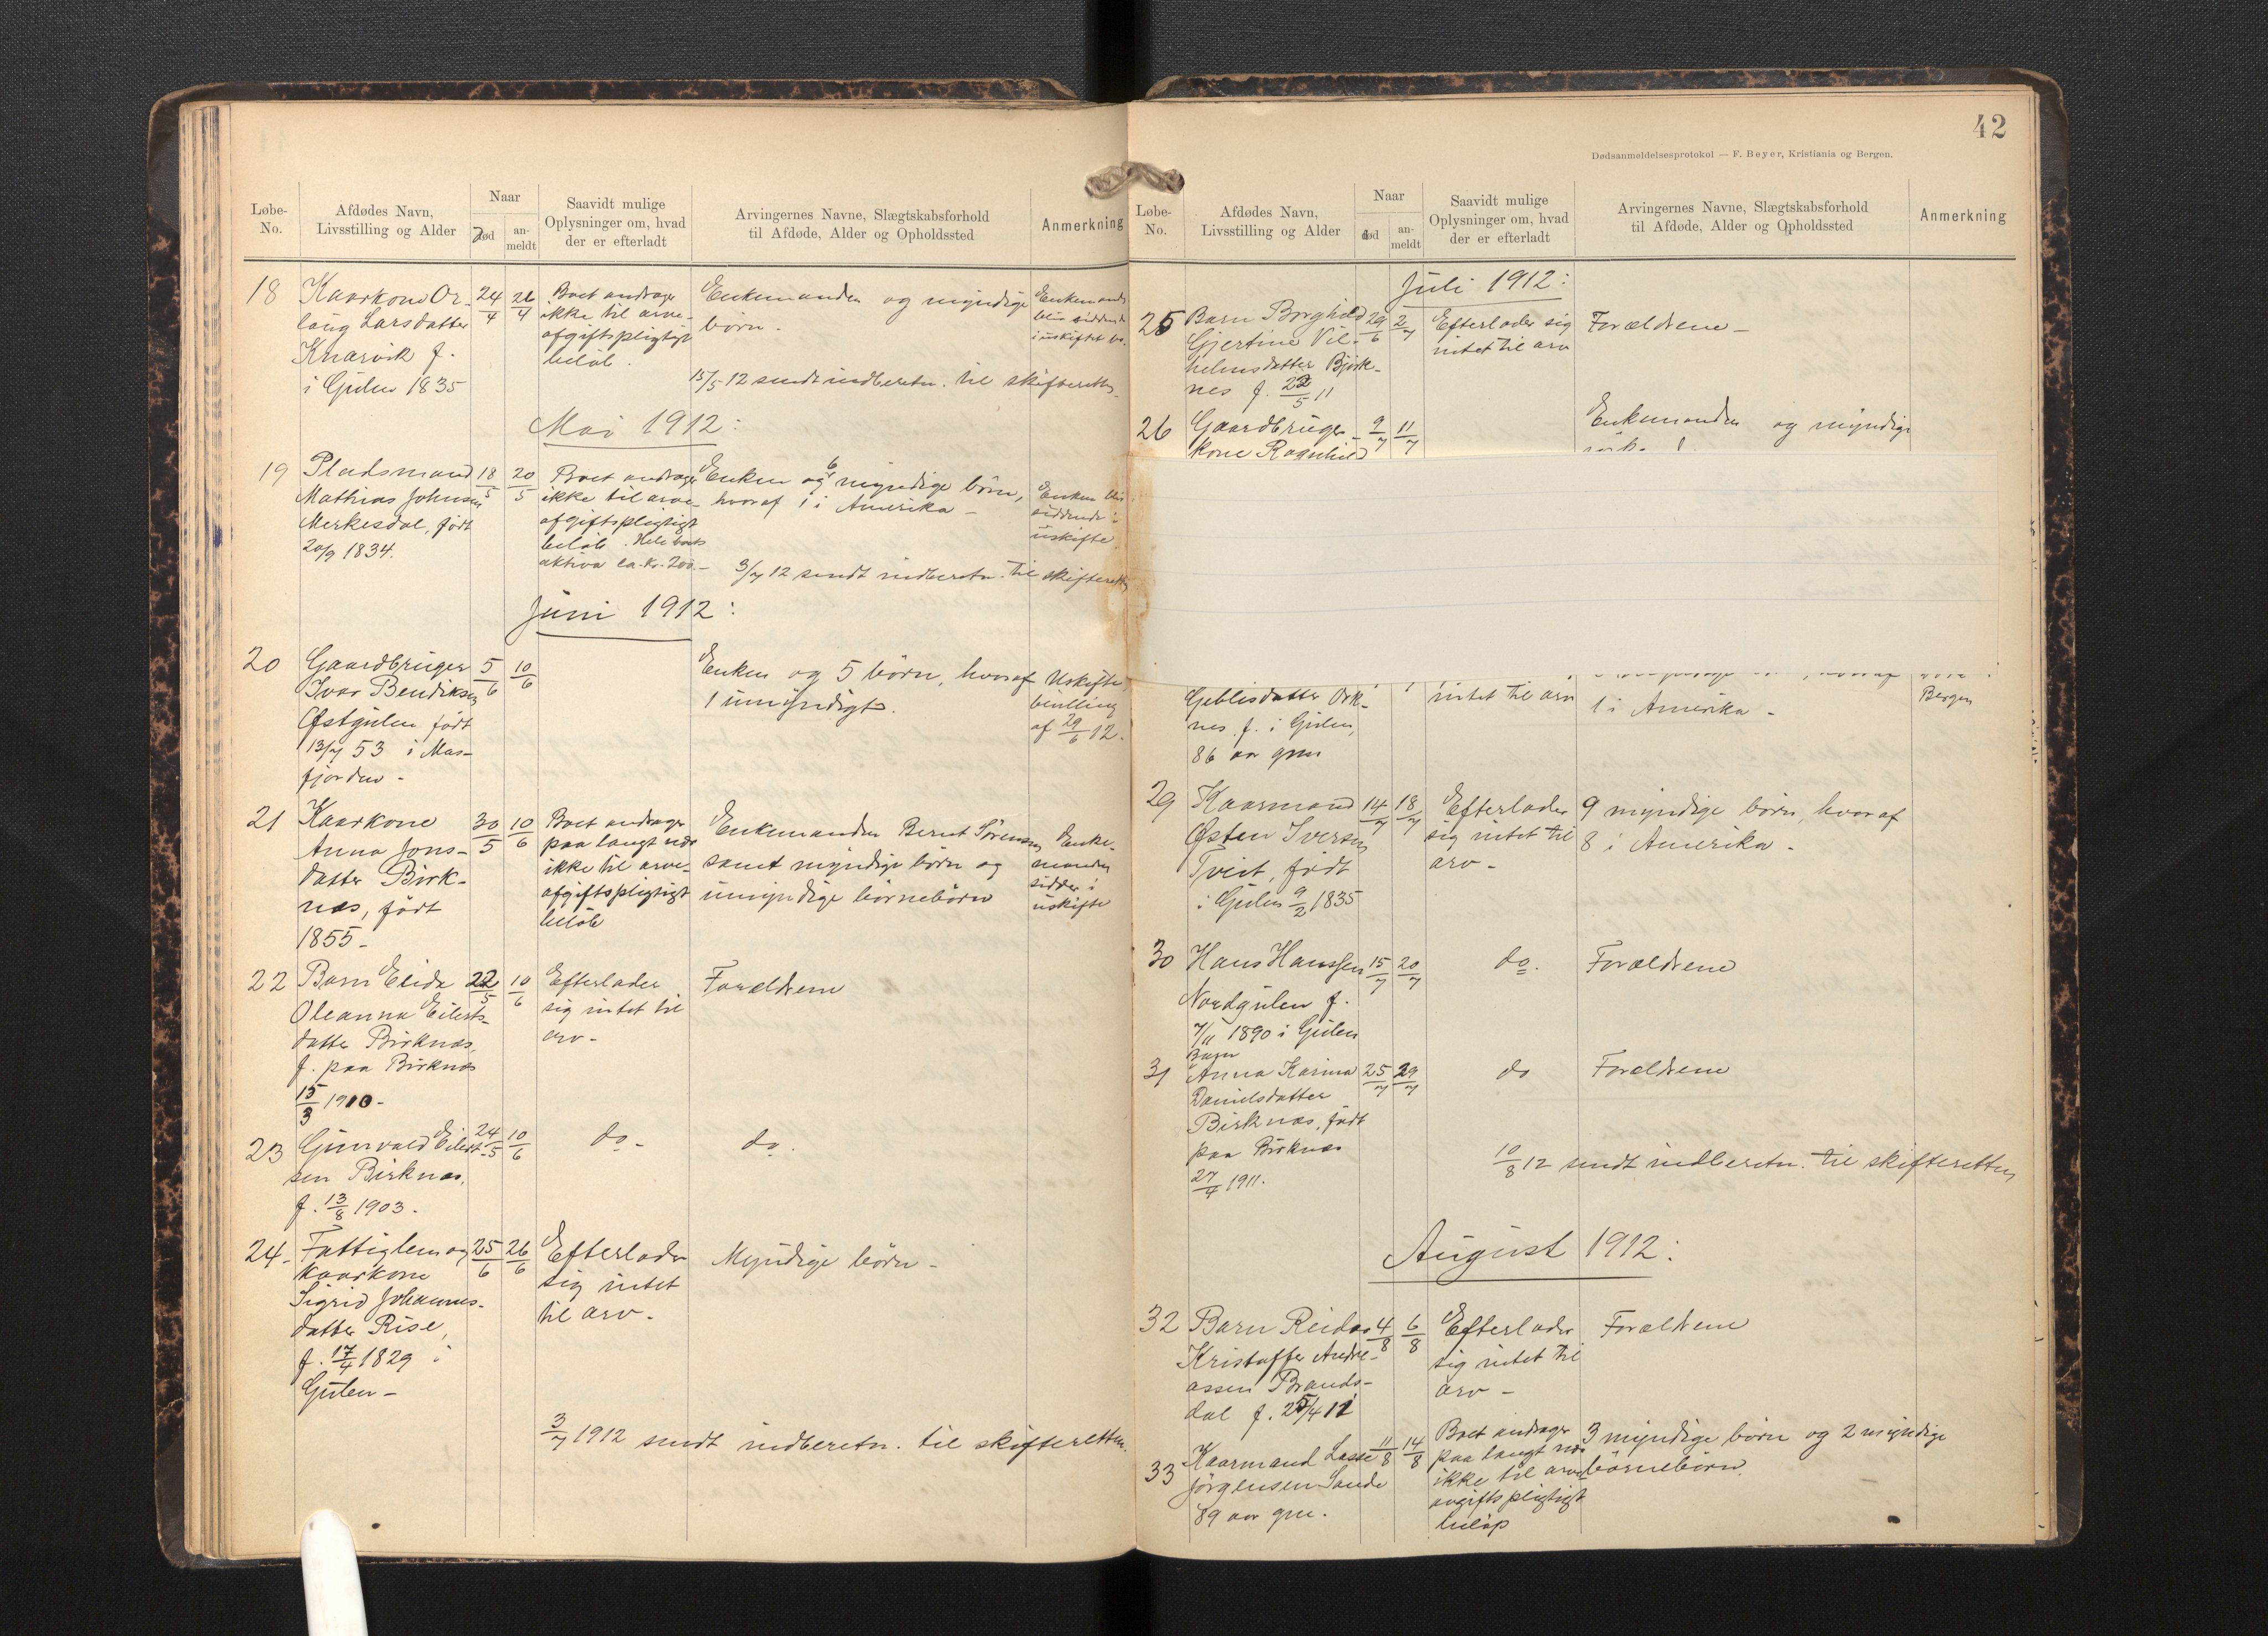 Løbe-
No.
Afdødes Navn,
Livsstilling og Alder
Naar
død
an-
meldt
Saavidt mulige
Oplysninger om, hvad
der er efterladt
Arvingernes Navne, Slægtskabsforhold
til Afdøde, Alder og Opholdssted
Anmerkning
18
Kaarkone Or-
laug Larsdatter
Knarvik f.
i Gulen 1835
24/4
26/4
Boet andrager
ikke til arve-
afgiftspligtigt
beløb.
Enkemanden og myndige
børn.
Enkemanden
blir siddende
i uskiftet bo.
15/5 12 sendt indberetn. til skifteretten.
Mai 1912:
19
Pladsmand
Mathias Johnsen
Merkesdal, født
20/9 1834.
18/5
20/5
Boet andrager
ikke til arve-
afgiftspligtigt
beløb. Hele boets
aktiva ca. kr. 200.-
Enken og 6 myndige børn,
hvoraf 1 i Amerika -
Enken blir
siddende i
uskifte.
3/7 12 sendt indberetn. til skifteretten
Juni 1912:
20
Gaardbruger
Ivar Bendiksen
Østgulen født
13/7 53 i Mas-
fjorden -
5/6
10/6
Enken og 5 børn, hvoraf
1 umyndigt.
Uskifte
bevilling
af 29/6 12.
21
Kaarkone
Anna Jons-
datter Birk-
næs, født
1855 -
30/5
10/6
Boet andrager
paa langt nær
ikke til arve-
afgiftspligtigt
beløb
Enkemanden Bernt Sørensen
samt myndige børn og
umyndige børnebørn
Enke-
manden
sidder i
uskifte
22
Barn Elida
Oleanna Eilerts-
datter Birknæs,
f. paa Birknæs
15/3 1910 -
22/5
10/6
Efterlader
sig intet til
arv -
Forældrene
23
Gunvald Eilert-
sen Birknæs,
f. 13/8 1903.
24/5
10/6
do -
do.
24 -
Fattiglem og
kaarkone
Sigrid Johannes-
datter Rise,
f. 17/4 1829 i
Gulen -
25/6
26/6
Efterlader
sig intet
til arv -
Myndige børn -
3/7 1912 sendt indberetn. til skifteretten.
42
Dødsanmeldelsesprotokol — F. Beyer, Kristiania og Bergen.
Løbe-
No.
Afdødes Navn,
Livsstilling og Alder
Naar
død
an-
meldt
Saavidt mulige
Oplysninger om, hvad
der er efterladt
Arvingernes Navne, Slægtskabsforhold
til Afdøde, Alder og Opholdssted
Anmerkning
Juli 1912:
25
Barn Borghild
Gjertine Vil-
helmsdatter Bjørk-
nes f. 22/5 11
29/6
2/7
Efterlader sig
intet til arv
Forældrene -
26
Gaardbruger-
kone Ragnhild
9/7
11/7
Enkemanden og myndige
Geblisdatter Ork-
nes f. i Gulen,
86 aar gml
intet til arv
1 i Amerika -
Bergen
29
Kaarmand
Østen Iversen
Tveit, født
i Gulen 9/2 1835
14/7
18/7
Efterlader
sig intet til
arv -
9 myndige børn, hvoraf
8 i Amerika -
30
Hans Hanssen
Nordgulen f.
7/11 1890 i Gulen
15/7
20/7
do.
Forældrene
31
Barn
Anna Karina
Danielsdatter
Birknæs, født
paa Birknæs
27/4 1911.
25/7
29/7
do
Forældrene
10/8 12 sendt indberetn. til skifteretten
August 1912:
32
Barn Reidar
Kristoffer Andre-
assen Brands-
dal f. 25/4 11
4/8
6/8
Efterlader
sig intet til
arv -
Forældrene
33
Kaarmand Lasse
Jørgensen Sande
89 aar gml.
11/8
14/8
Boet andrager
paa langt nær
ikke til arve-
avgiftspligtigt
beløp
3 myndige børn og 2 myndige
børnebørn.